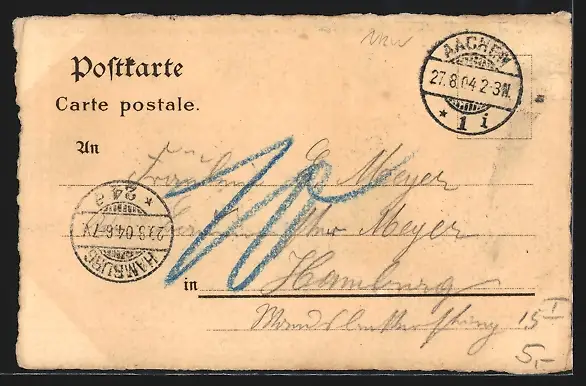 NRW
AACHEN
27.8.04 2-3N.
* 1 i
Postkarte
Carte postale.
An
Fräulein E. Meyer
Meyer
in Hamburg
15 I
5,-
10
* 24 a
29.8.04.6-7V
HAMBURG